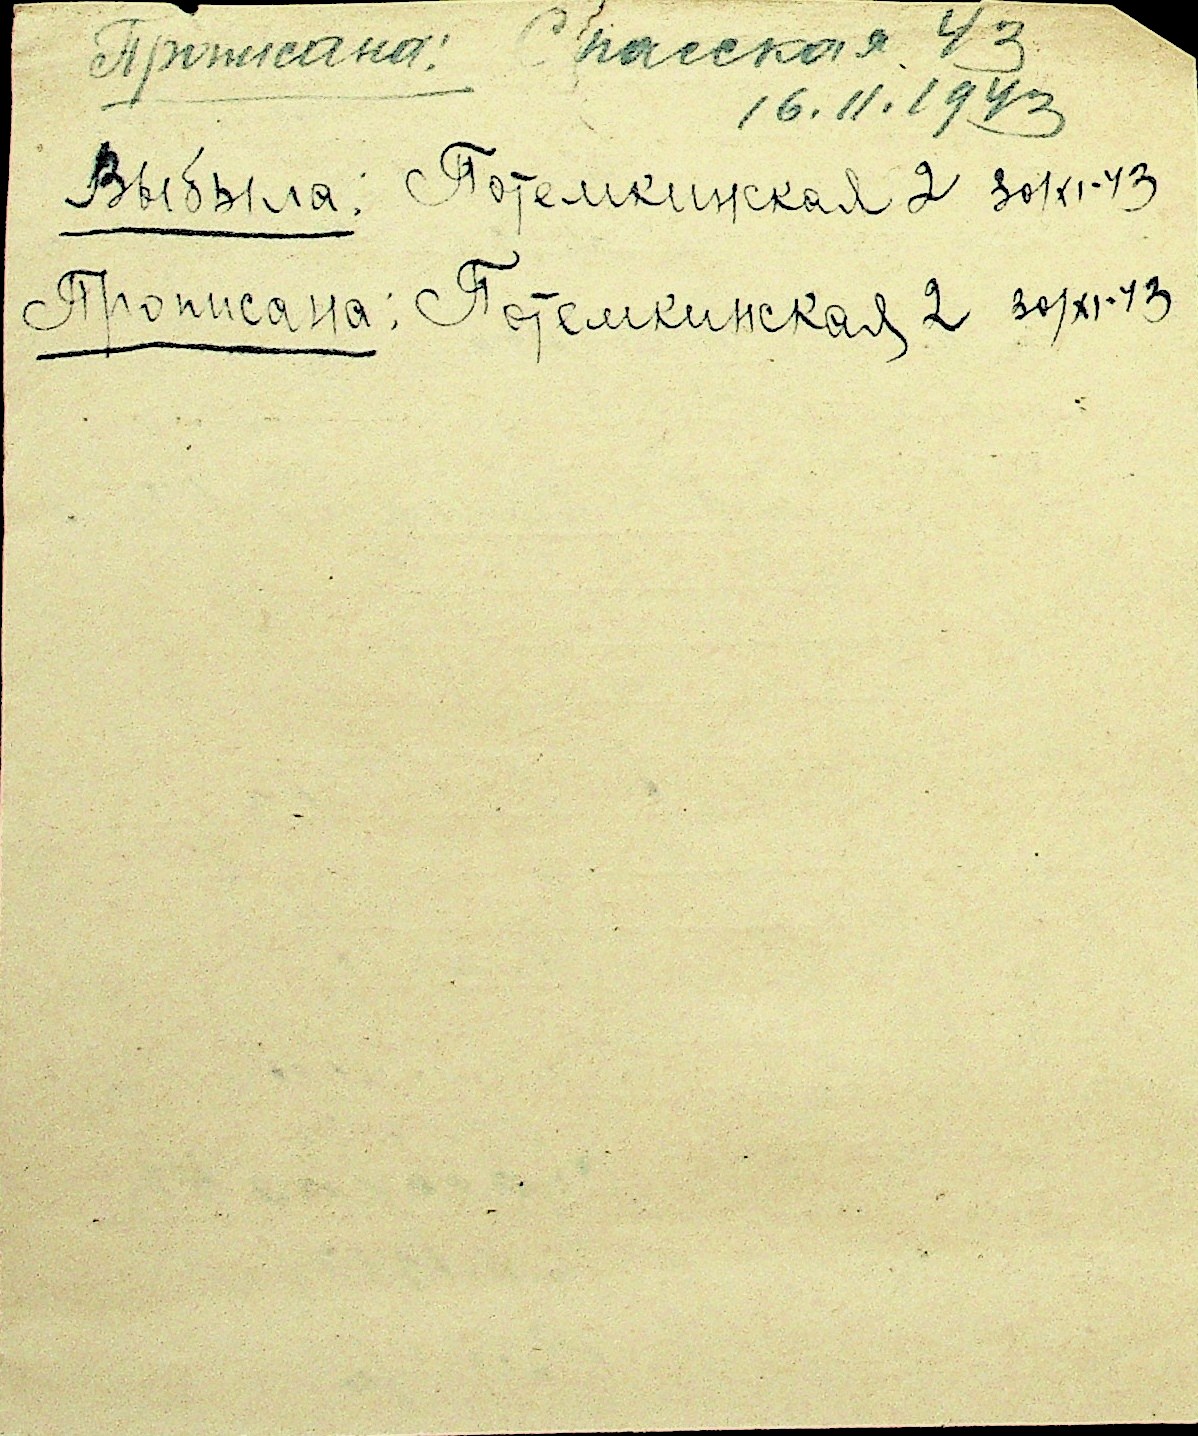 Прописана: Спасская 43
16.11.1943
Выбыла: Потемкинская 2 30/XI-43
Прописана: Потемкинская 2 30/XI-43